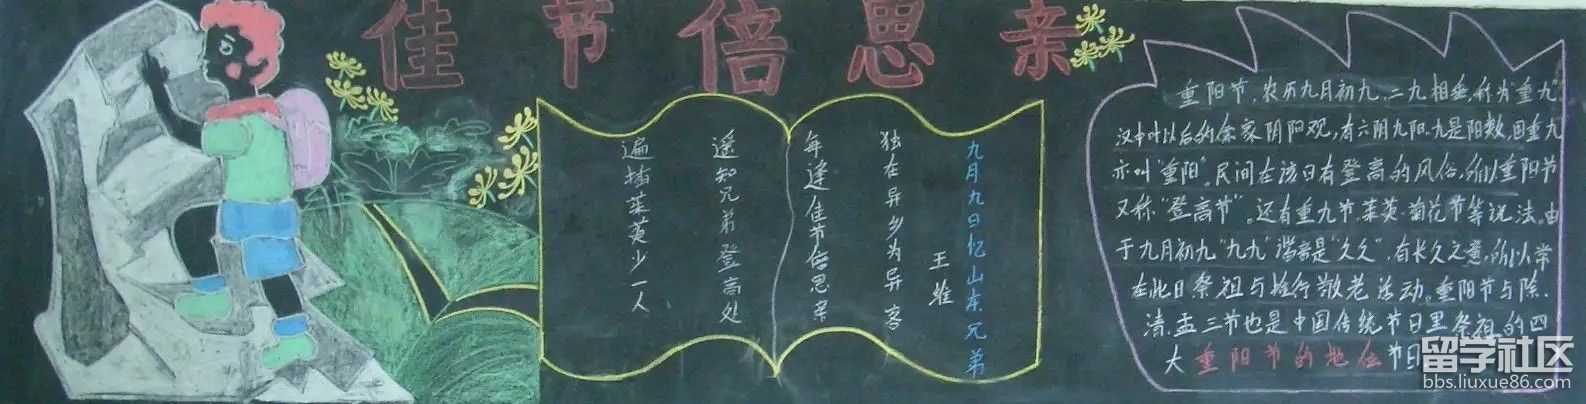 佳节倍思亲
九月九日忆山东兄弟
王维
独在异乡为异客
每逢佳节倍思亲
遥知兄弟登高处
遍插茱萸少一人
重阳节，农历九月初九，二九相重，称为"重九"
汉中叶以后的儒家阴阳观，有六阴九阳。九是阳数，因重九
亦叫"重阳"。民间在该日有登高的风俗，所以重阳节
又称"登高节"。还有重九节、茱萸、菊花节等说法。由
于九月初九"九九"谐音是"久久"，有长久之意，所以常
在此日祭祖与推行敬老活动。重阳节与除、
清、盂三节也是中国传统节日里祭祖的四
大重阳节的地位节日
留学社区
bbs.liuxue86.com